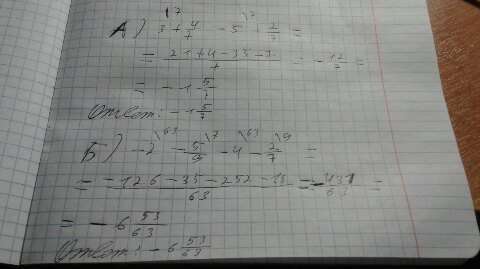 А) 3 + 4/7 - 5 + 2/7 =
= 21+4-35-2/7 = -12/7 =
= -1 5/7
Ответ: -1 5/7
Б) -2 - 5/9 - 4 - 2/7 =
= -126-35-252-18/63 = -431/63 =
= -6 53/63
Ответ: -6 53/63